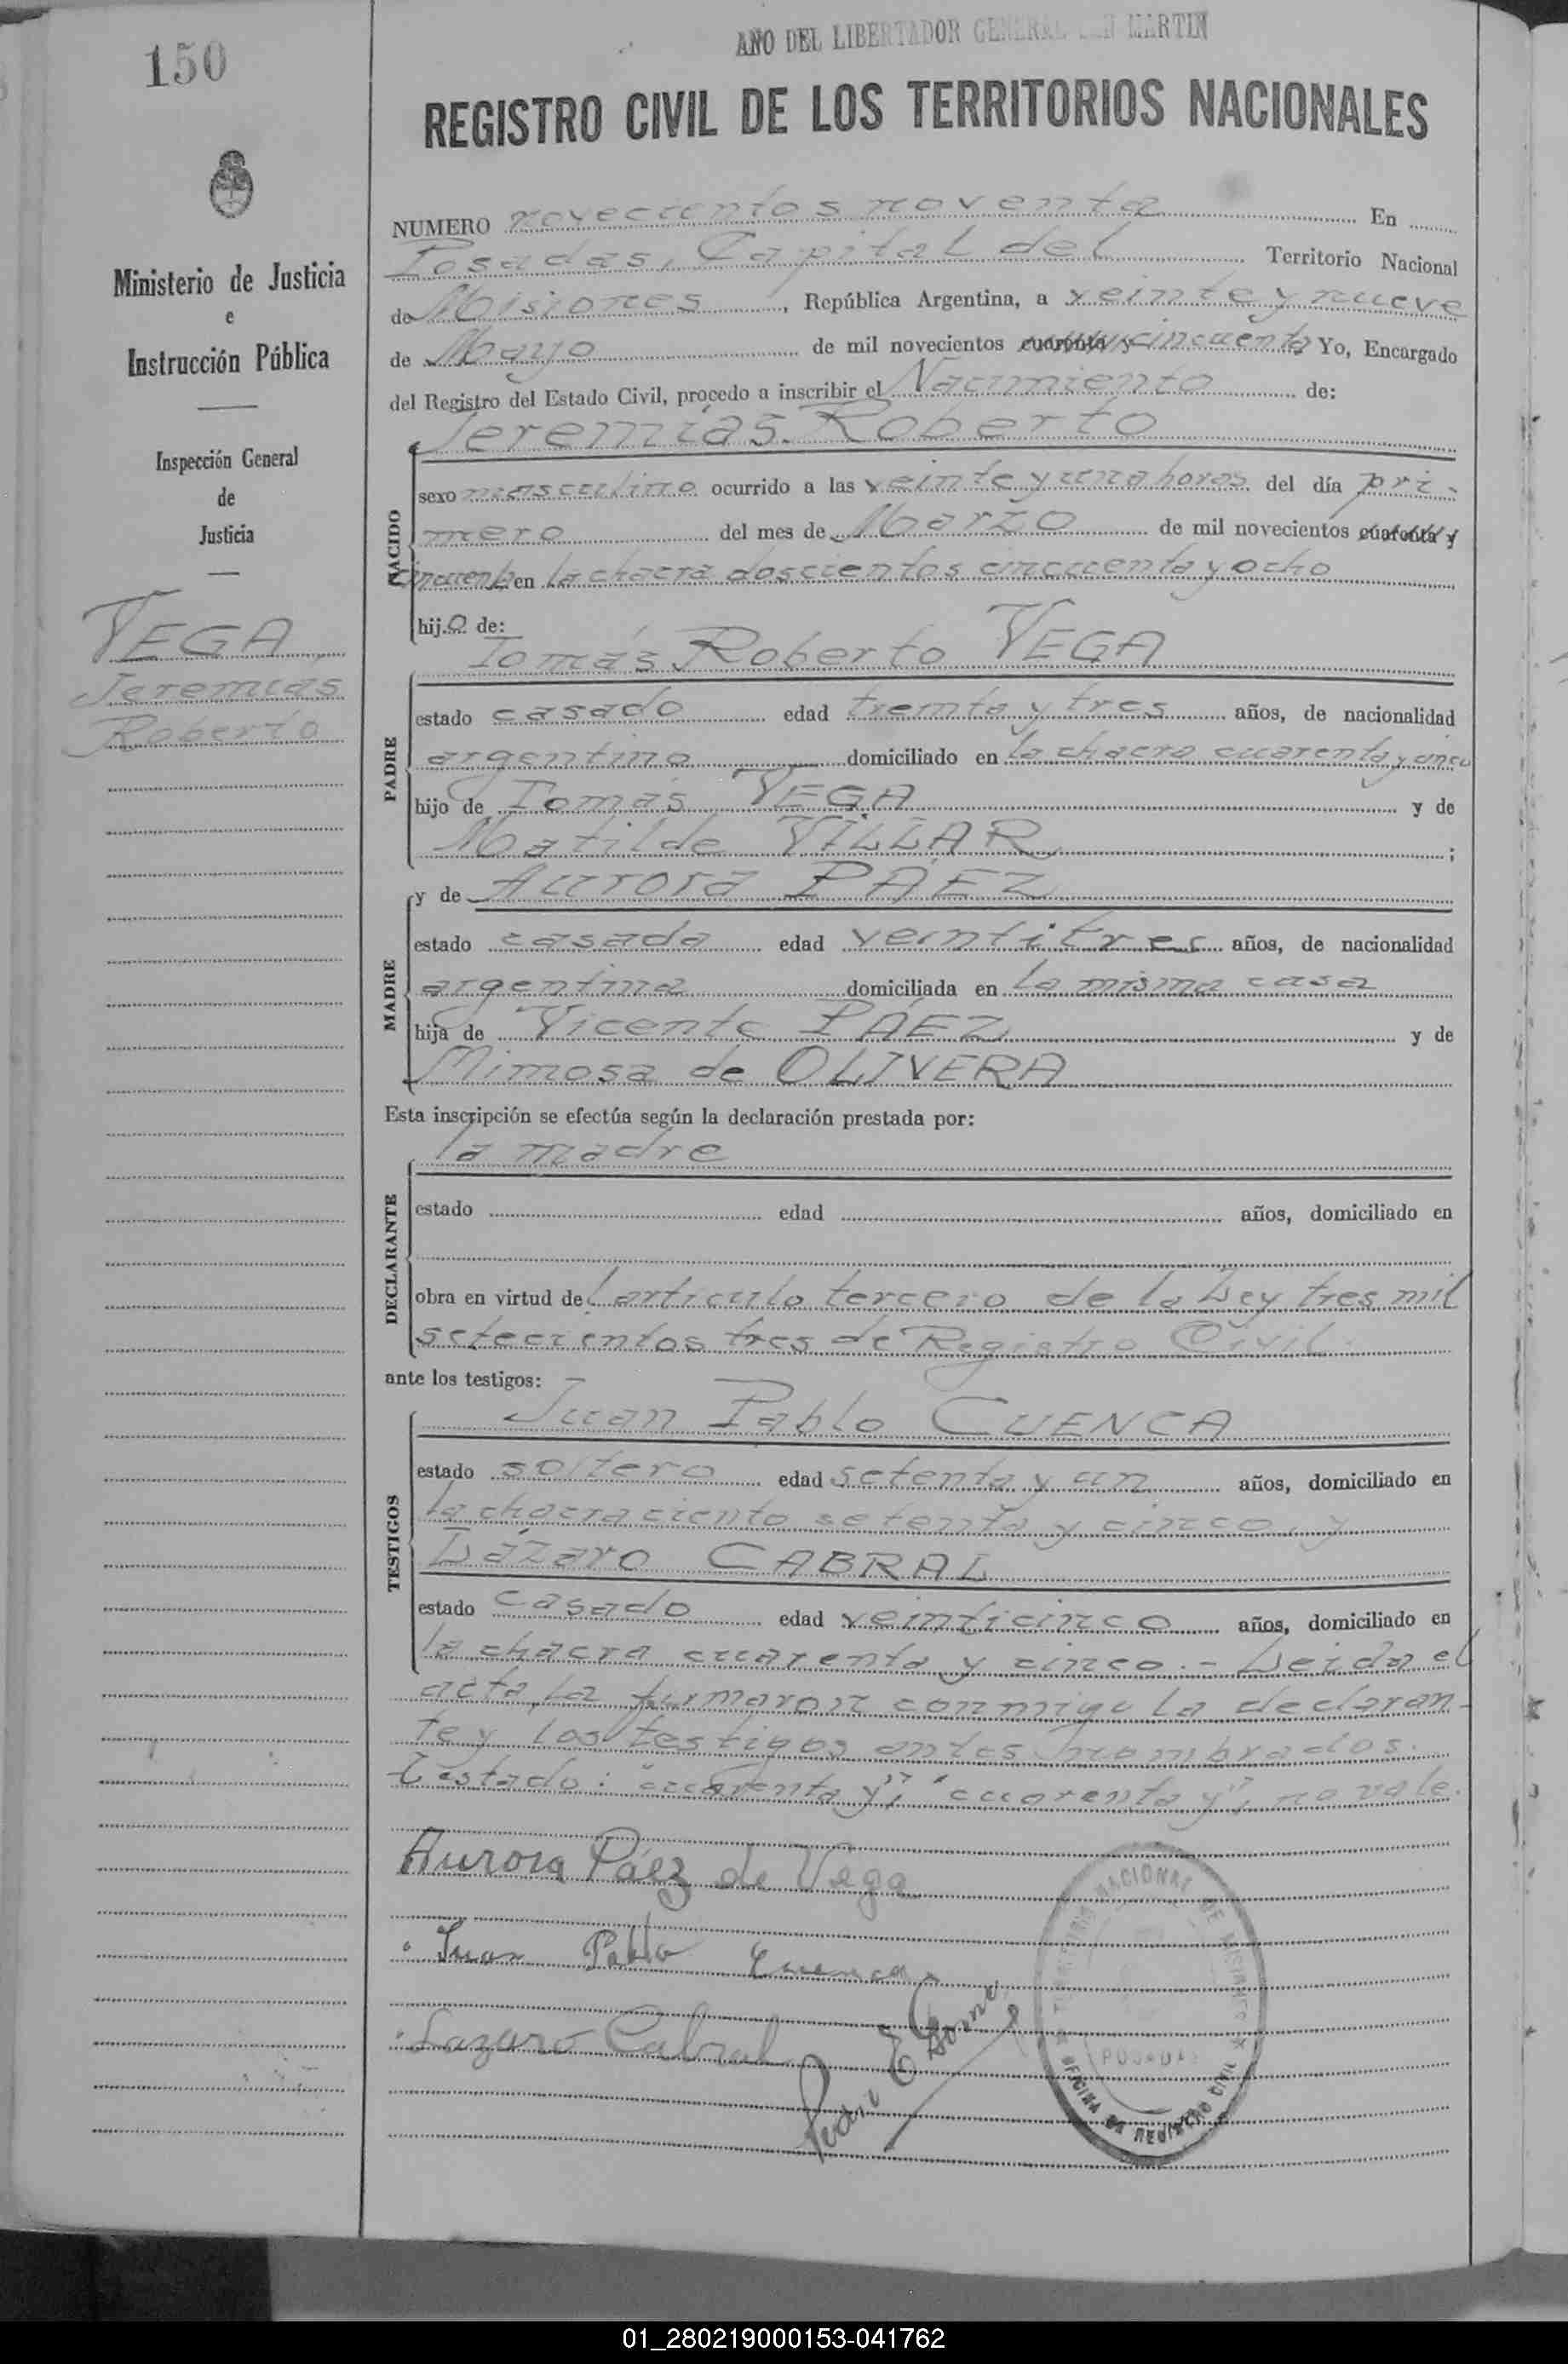 150
AÑO DEL LIBERTADOR GENERAL SAN MARTIN
REGISTRO CIVIL DE LOS TERRITORIOS NACIONALES
Ministerio de Justicia
e
Instrucción Pública
Inspección General
de
Justicia
VEGA
Jeremías
Roberto
NUMERO novecientos noventa En
Posadas, Capital del Territorio Nacional
de Misiones, República Argentina, a veinte y nueve
de Mayo de mil novecientos cuarenta y cincuenta Yo, Encargado
del Registro del Estado Civil, procedo a inscribir el Nacimiento de:
Jeremías Roberto
NACIDO
sexo masculino ocurrido a las veinte y una horas del día pri-
mero del mes de Marzo de mil novecientos cuarenta y
cincuenta en la chacra doscientos cincuenta y ocho
hijo de:
Tomás Roberto VEGA
PADRE
estado casado edad treinta y tres años, de nacionalidad
argentino domiciliado en la chacra cuarenta y cinco
hijo de Tomás VEGA y de
Matilde VILLAR ;
y de Aurora PÁEZ
MADRE
estado casada edad veintitres años, de nacionalidad
argentina domiciliada en la misma casa
hija de Vicente PÁEZ y de
Mimosa de OLIVERA
Esta inscripción se efectúa según la declaración prestada por:
la madre
DECLARANTE
estado edad años, domiciliado en
obra en virtud del artículo tercero de la Ley tres mil
setecientos tres de Registro Civil
ante los testigos:
Juan Pablo CUENCA
TESTIGOS
estado soltero edad setenta y un años, domiciliado en
la chacra ciento setenta y cinco, y
Lázaro CABRAL
estado casado edad veinticinco años, domiciliado en
la chacra cuarenta y cinco.- Leida el
acta, la firmaron conmigo la declaran-
te y los testigos antes nombrados.
Testado: "cuarenta y"; "cuarenta y"; no vale.
Aurora Páez de Vega
Juan Pablo Cuenca
Lazaro Cabral
POSADAS
OFICINA DE REGISTRO CIVIL
01_280219000153-041762